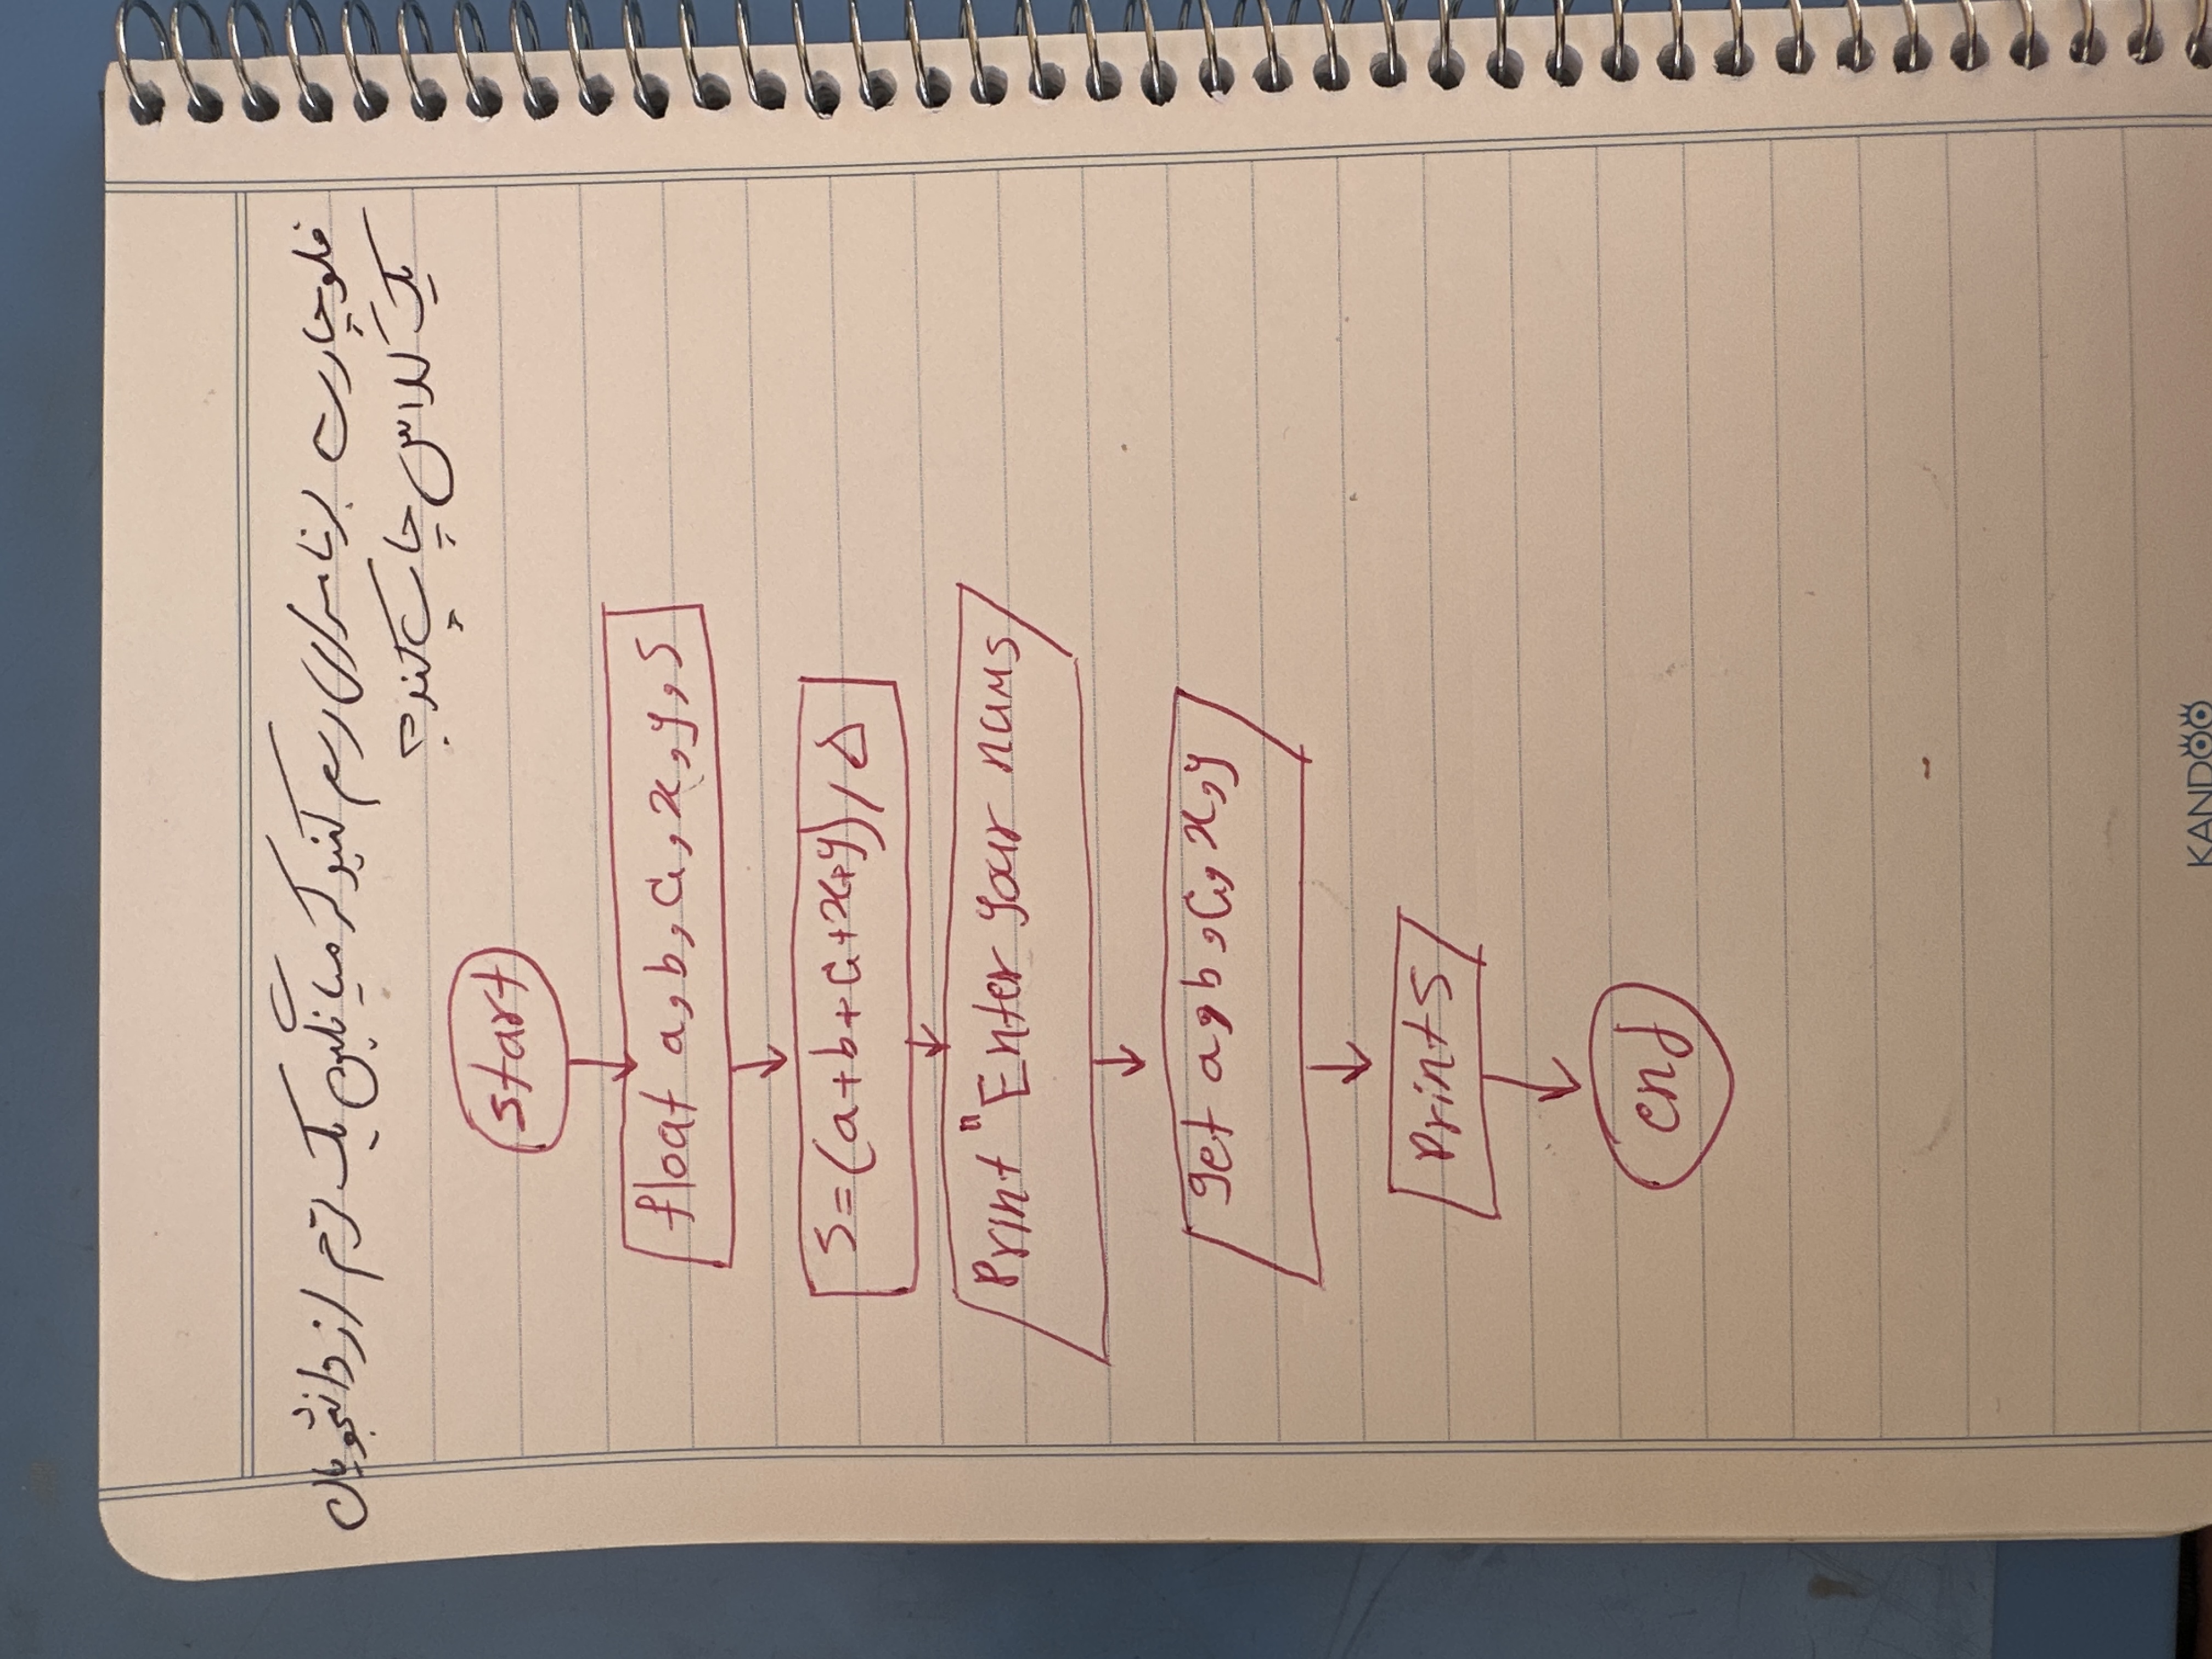 فلوچارت برنامه‌ای رسم کنید که میانگین یک ترم از دانشجویان
یک کلاس چاپ کند؟
start
float a, b, c, x, y, s
s=(a+b+c+x+y)/۵
Print "Enter your nums
get a, b, c, x, y
Print s
end
KANDOO